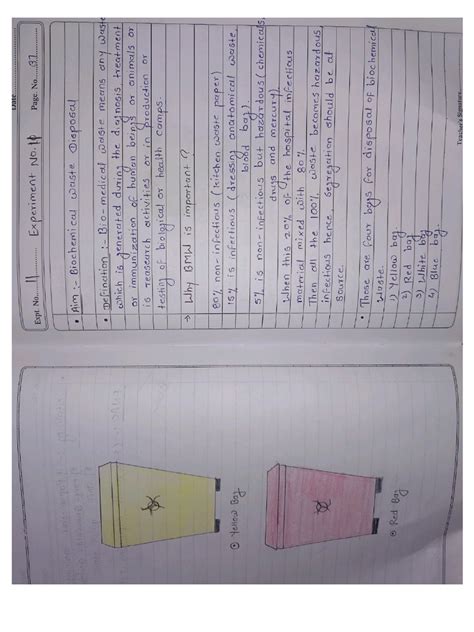 Date
Expt. No. 11
Experiment No. 11
Page No. 37
• Aim :- Biochemical waste Disposal
• Definaction :- Bio-medical waste means any waste
which is generated during the diagnosis treatment
or immunization of human beings or animals or
is reasearch activities or in production or
testing of biological or health camps.
→ Why BMW is important ?
80% non-infectious (kitchen waste paper)
15% is infectious (dressing anatomical waste,
blood bag).
5% is non-infectious but hazardous (chemicals,
drugs and mercury)
When this 20% of the hospital infectious
material mixed with 80%.
Then all the 100% waste becomes hazardous,
infectious hence, segregation should be at
source.
• These are four bags for disposal of biochemical
waste.
1) Yellow bag
2) Red bag
3) White bag
4) Blue bag.
Teacher's Signature
Yellow Bag
Red Bag